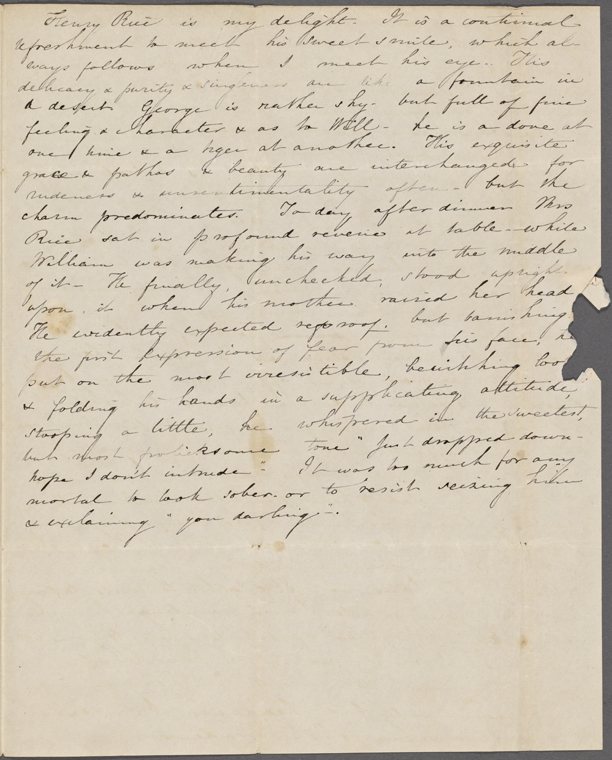 Henry Rice is my delight. It is a continual
refreshment to meet his sweet smile, which al-
ways follows when I meet his eye. His
delicacy & purity & singleness are like a fountain in
a desert. George is rather shy- but full of fine
feeling & character & as to Will- he is a dove at
one time & a tiger at another. His exquisite
grace & pathos & beauty are interchanged for
rudeness & unsentimentality often - but the
charm predominates. To day after dinner Mrs
Rice sat in profound reverie at table - while
William was making his way into the middle
of it - He finally, unchecked, stood upright
upon it when his mother raised her head.
He evidently expected reproof. but banishing
the first expression of fear from his face, he
put on the most irresistible, bewitching look
& folding his hands in a supplicating attitude,
stooping a little, he whispered in the sweetest,
but most frolicksome tone "Just dropped down-
hope I don't intrude". It was too much for any
mortal to look sober. or to resist seizing him
& exclaiming "you darling".